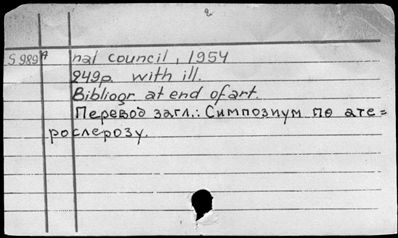 2
S 989 A nal council, 1954
249p. with ill.
Bibliogr. at end of art.
Перевод загл.: Симпозиум по ате=
рослерозу.